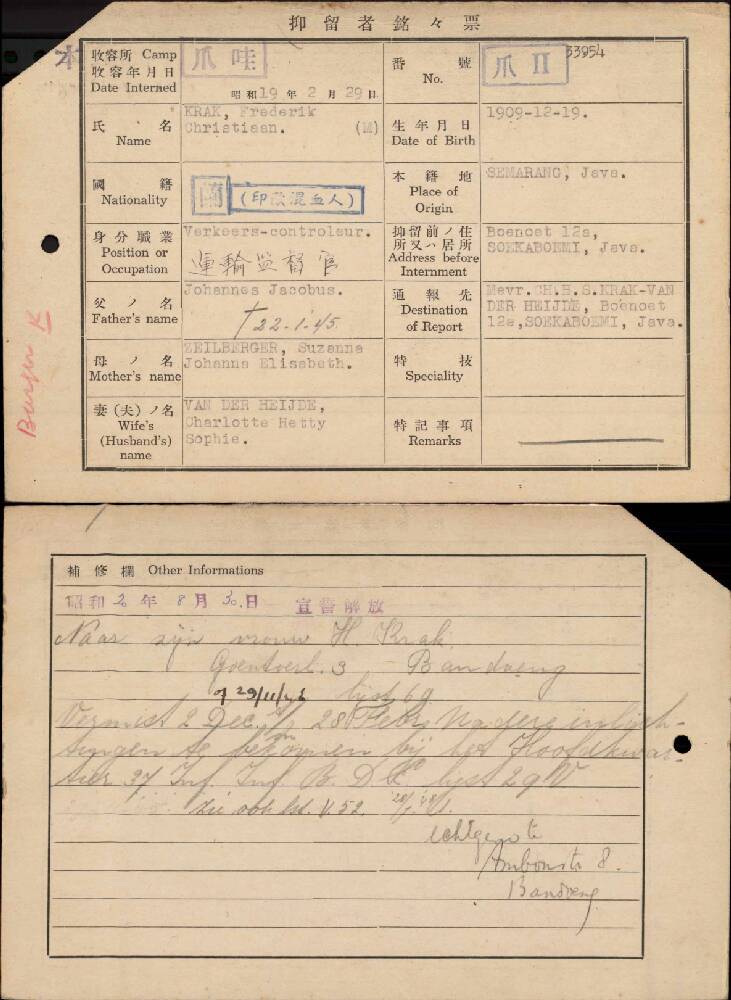 抑留者銘々票
本
收容所 Camp
收容年月日
Date Interned
爪哇
昭和19年2月29日
番號
No.
爪 II
33954
氏名
Name
KRAK, Frederik
Christiaan. (M)
生年月日
Date of Birth
1909-12-19.
國籍
Nationality
蘭 (印欧混血人)
本籍地
Place of
Origin
SEMARANG, Java.
身分職業
Position or
Occupation
Verkeers-controleur.
運輸监督官
抑留前ノ住
所又ハ居所
Address before
Internment
Boenoet 12a,
SOEKABOEMI, Java.
父ノ名
Father's name
Johannes Jacobus.
† 22-1-45
通報先
Destination
of Report
Mevr.CH.H.S.KRAK-VAN
DER HEIJDE, Boenoet
12a,SOEKABOEMI, Java.
母ノ名
Mother's name
ZEILBERGER, Suzanna
Johanna Elisabeth.
特技
Speciality
妻(夫)ノ名
Wife's
(Husband's)
name
VAN DER HEIJDE,
Charlotte Hetty
Sophie.
特記事項
Remarks
Burger K
補修欄 Other Informations
昭和20年8月30日 宣誓解放
Naar zijn vrouw H. Krak
3 Bandoeng
29/11/45 lijst 69
Vermist 2 Dec. 28 Febr. Nadere inlich-
tingen te bekomen bij het Hoofdkwar-
tier 37 Inf. Inf. B. D. lijst 29 W
Zie ook lst. V. 52.
echtgenote
Ambonstr 8.
Bandoeng